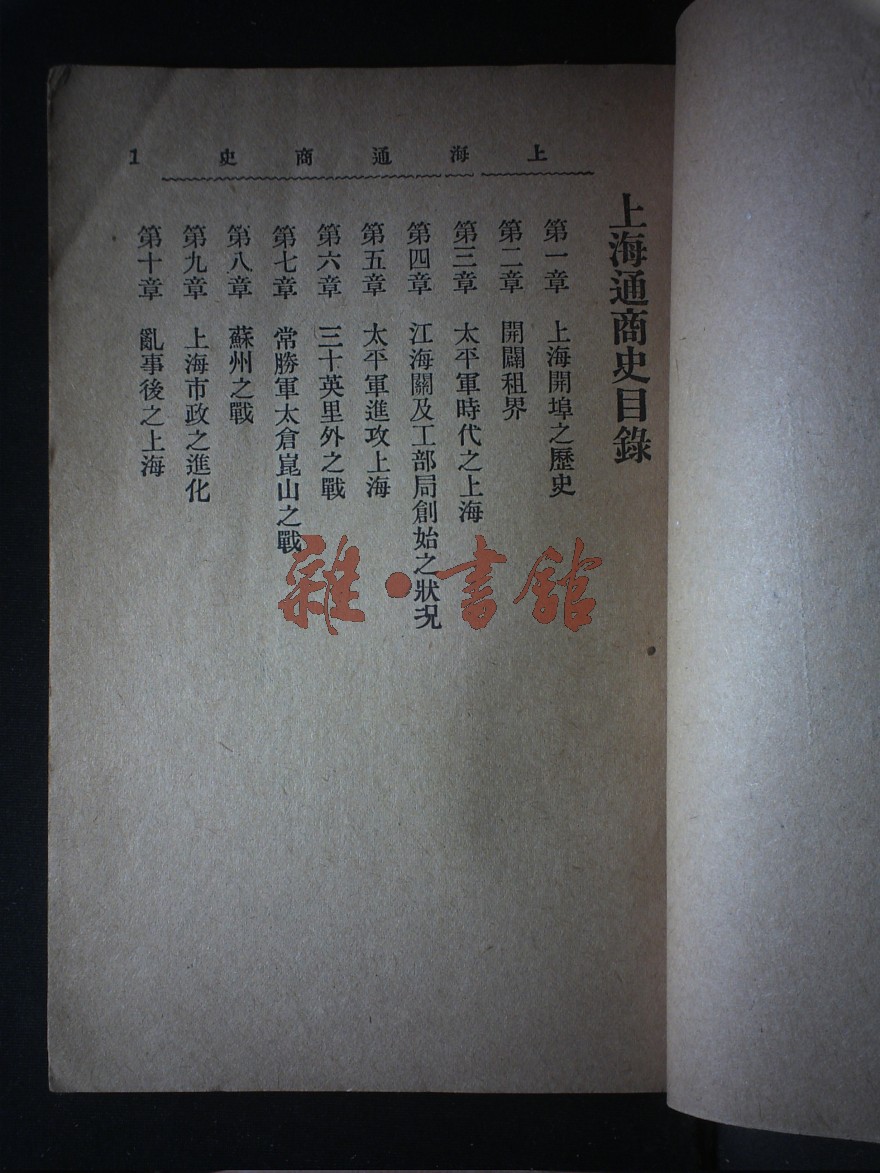 上海通商史 1
上海通商史目錄
第一章 上海開埠之歷史
第二章 開闢租界
第三章 太平軍時代之上海
第四章 江海關及工部局創始之狀況
第五章 太平軍進攻上海
第六章 三十英里外之戰
第七章 常勝軍太倉崑山之戰
第八章 蘇州之戰
第九章 上海市政之進化
第十章 亂事後之上海
雜·書館